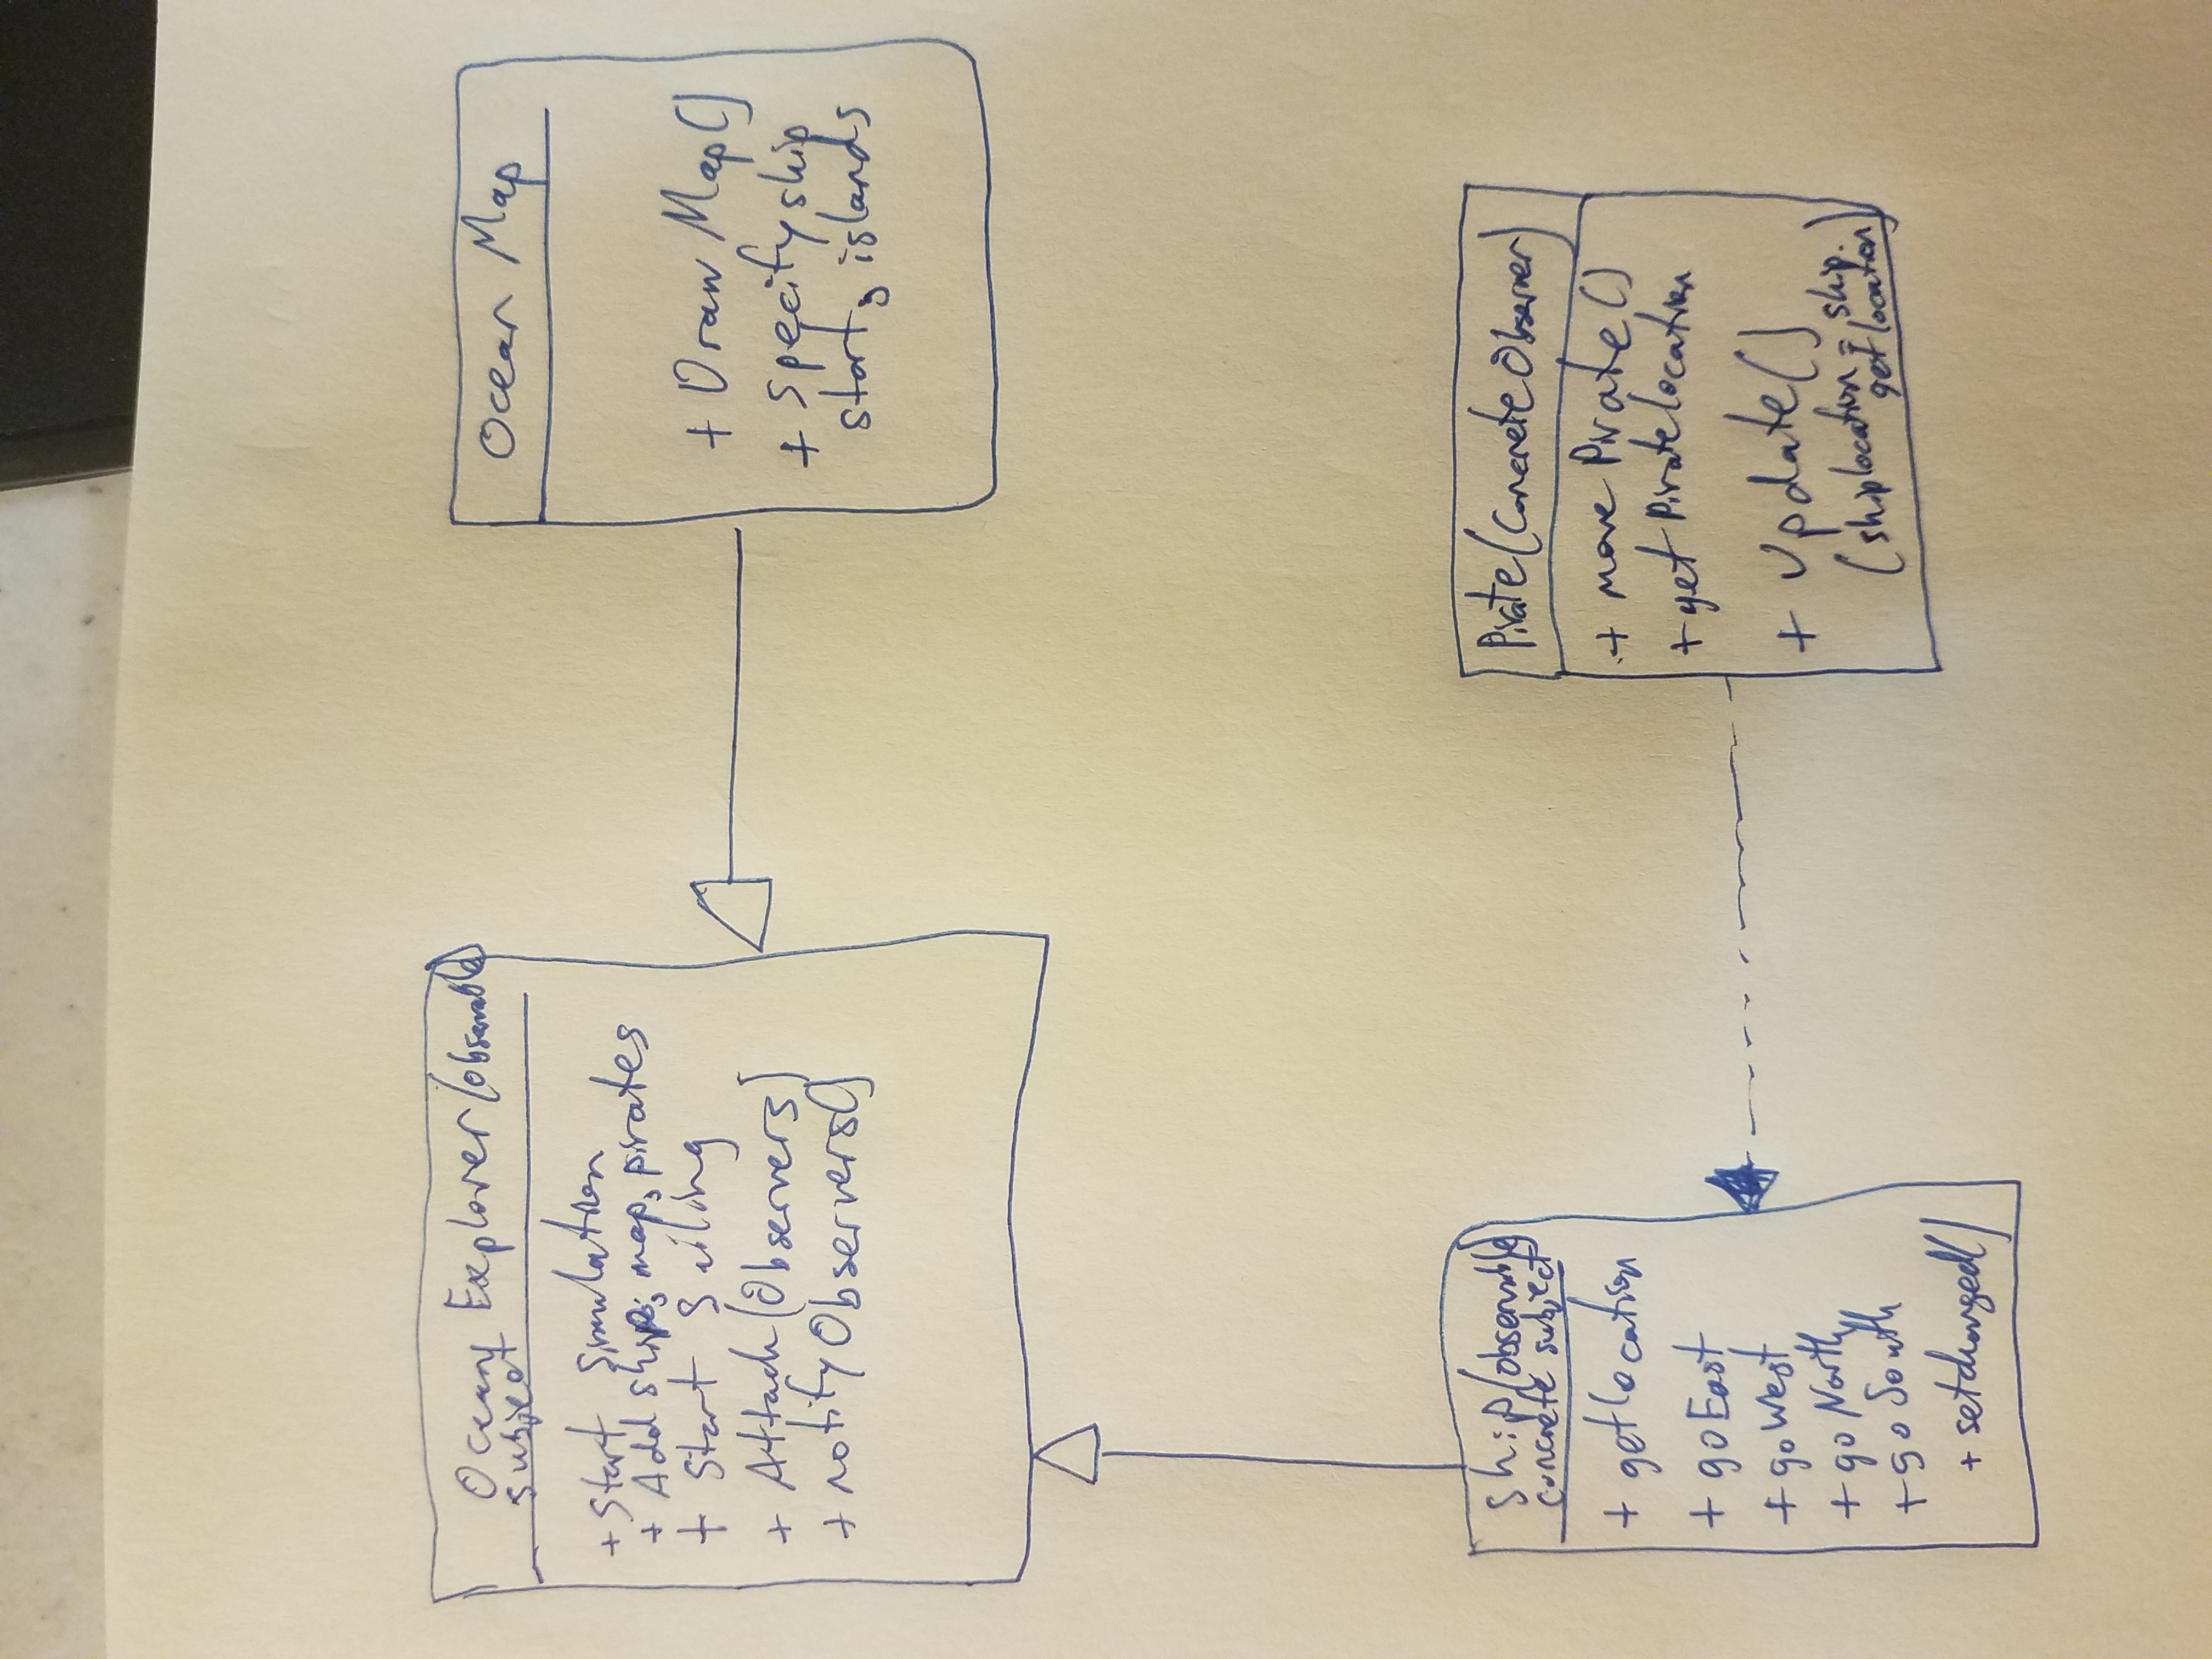 Ocean Explorer (observable)
subject
+ Start Simulation
+ Add ship, map, pirates
+ Start Sailing
+ Attach (Observers)
+ notify Observers()
Ocean Map
+ Draw Map()
+ specify ship
start, islands
ship (observable)
concrete subject
+ getlocation
+ go East
+ go West
+ go North
+ go South
+ setchanged()
Pirate (Concrete Observer)
+ move Pirate()
+ get Piratelocation
+ Update()
(shiplocation = ship.
getlocation)